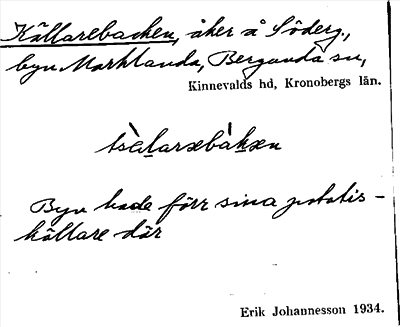 Källarebacken, åker å Söderg.,
byn Marklanda, Bergunda sn,
Kinnevalds hd, Kronobergs län.
Byn hade förr sina potatis-
källare där
Erik Johannesson 1934.